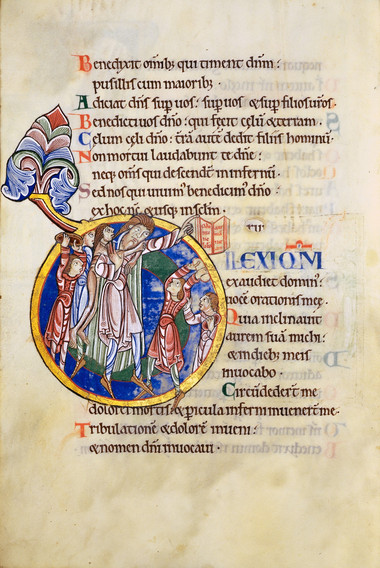 Benedixit omib; qui timent dnm:
pusillis cum maiorib;
Adiciat dns sup uos: sup uos & sup filios uros.
Benedicti uos dno: qui fecit celu & terram.
Celum celi dno: tra aute dedit filiis hominu.
Non mortui laudabunt te dne:
neq; oms qui descendt in infernu.
Sed nos qui uiuim' benedicim' dno:
ex hoc nc & usq; in sclm.
ILEXI QM
exaudiet domin':
uoce orationis mee.
Quia inclinauit
aurem sua michi:
& in dieb; meis
inuocabo.
Circudedert me
dolores mortis & pericula inferni inuenert me.
Tribulatione & dolore inueni:
& nomen dni inuocaui.